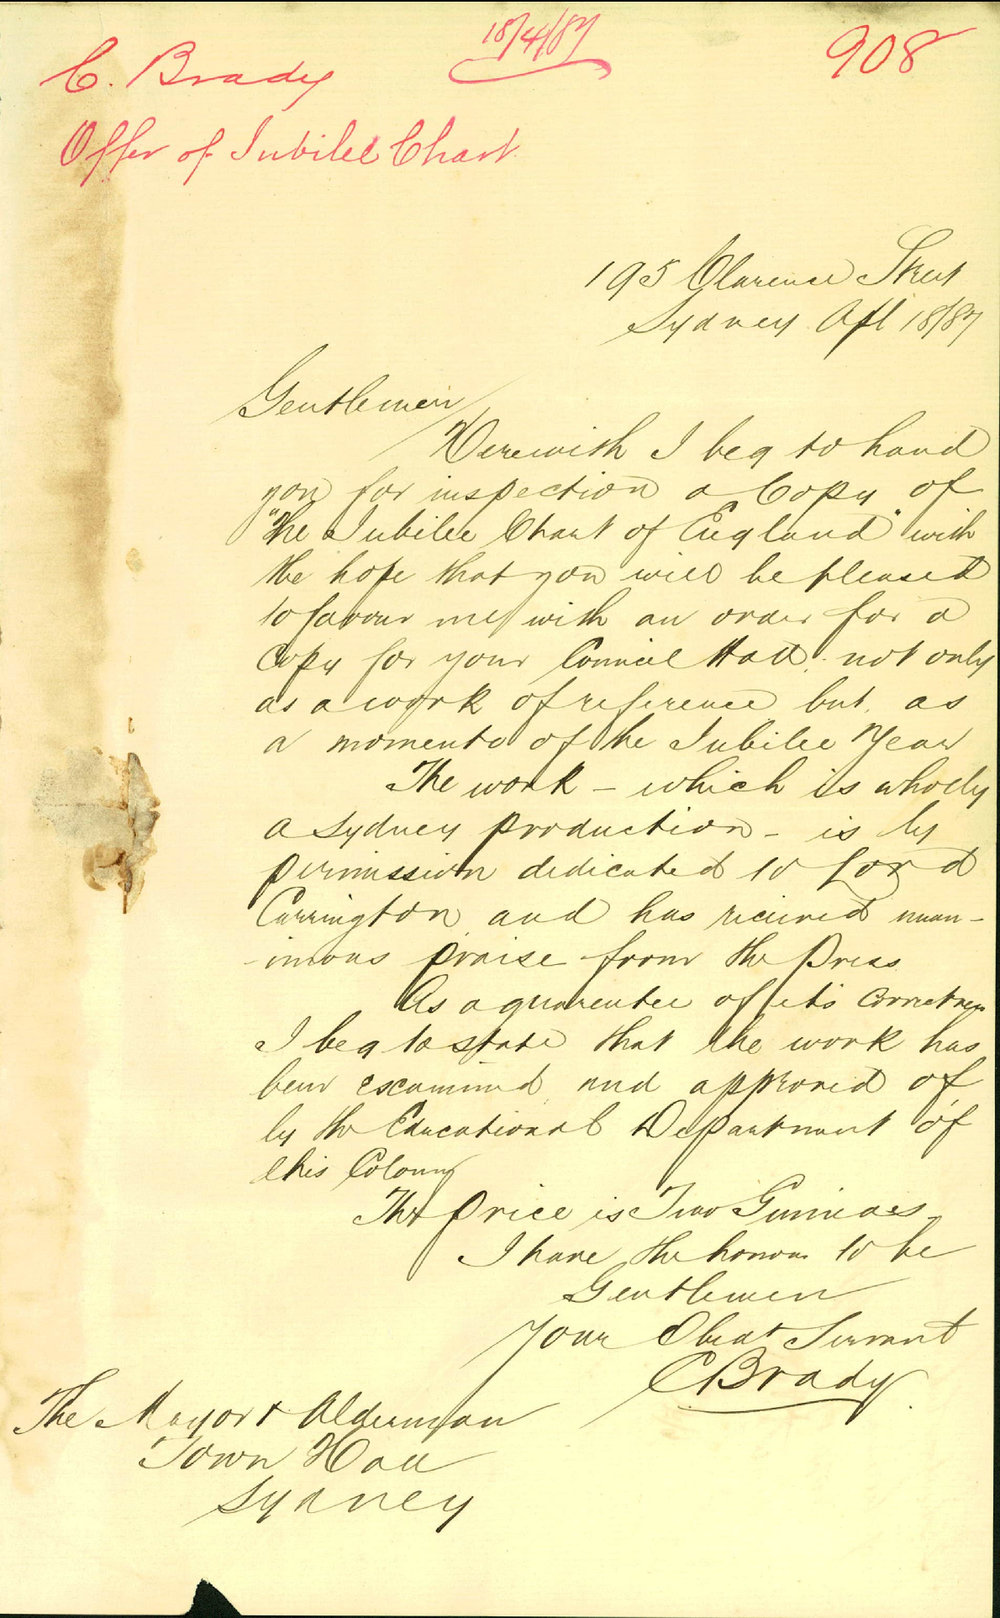 C. Brady
18/4/87
908
Offer of Jubilee Chart
195 Clarence Street
Sydney Apl 18/87
Gentlemen
Herewith I beg to hand
you for inspection a Copy of
"The Jubilee Chart of England" with
the hope that you will be pleased
to favour me with an order for a
Copy for your Council Hall, not only
as a work of reference but as
a momento of the Jubilee Year
The work – which is wholly
a Sydney production – is by
permission dedicated to Lord
Carrington and has received unan-
-imous praise from the Press
As a guarentee of it's correctness
I beg to state that the work has
been examined and approved of
by the Educational Department of
this Colony
The price is Two Guineas
I have the honour to be
Gentlemen
Your Obedt Servant
C Brady
The Mayor & Alderman
Town Hall
Sydney